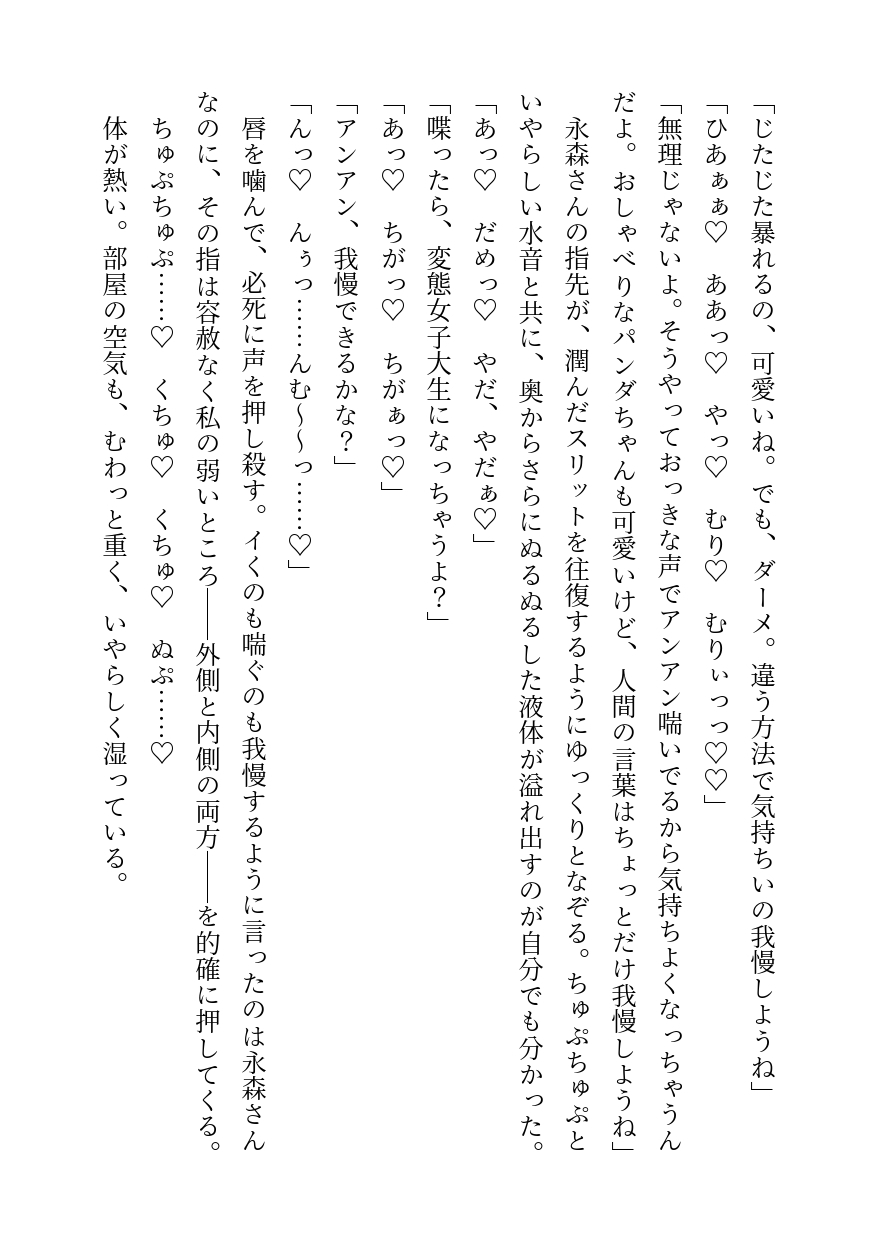 「じたじた暴れるの、可愛いね。でも、ダーメ。違う方法で気持ちいの我慢しようね」
「ひあぁぁ♡　ああっ♡　やっ♡　むり♡　むりぃっっ♡♡」
「無理じゃないよ。そうやっておっきな声でアンアン喘いでるから気持ちよくなっちゃうん
だよ。おしゃべりなパンダちゃんも可愛いけど、人間の言葉はちょっとだけ我慢しようね」
　永森さんの指先が、潤んだスリットを往復するようにゆっくりとなぞる。ちゅぷちゅぷと
いやらしい水音と共に、奥からさらにぬるぬるした液体が溢れ出すのが自分でも分かった。
「あっ♡　だめっ♡　やだ、やだぁ♡」
「喋ったら、変態女子大生になっちゃうよ？」
「あっ♡　ちがっ♡　ちがぁっ♡」
「アンアン、我慢できるかな？」
「んっ♡　んぅっ……んむ～～っ……♡」
　唇を噛んで、必死に声を押し殺す。イくのも喘ぐのも我慢するように言ったのは永森さん
なのに、その指は容赦なく私の弱いところ――外側と内側の両方――を的確に押してくる。
　ちゅぷちゅぷ……♡　くちゅ♡　くちゅ♡　ぬぷ……♡
　体が熱い。部屋の空気も、むわっと重く、いやらしく湿っている。